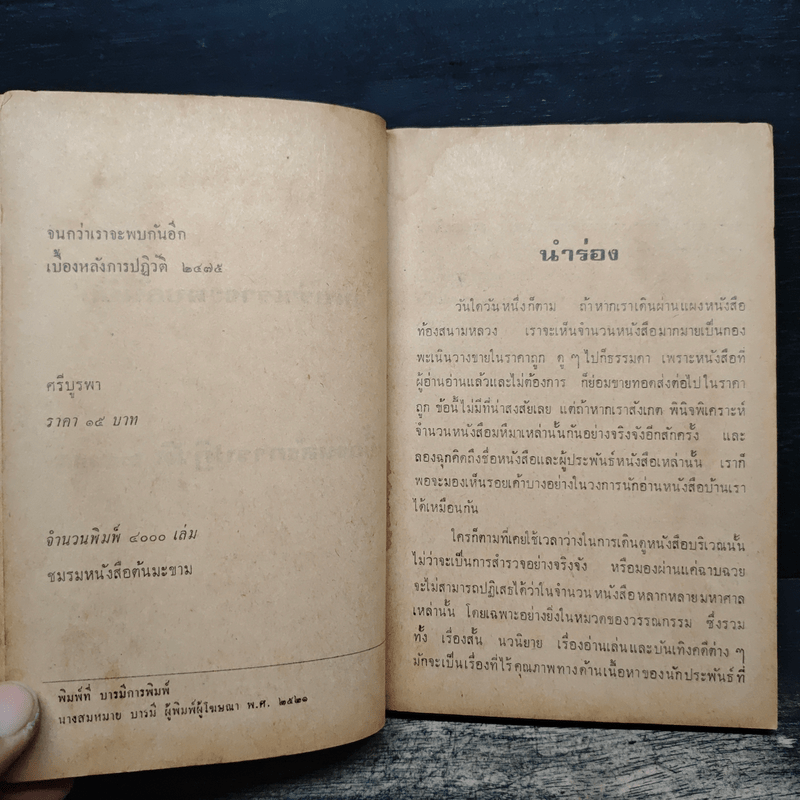 จนกว่าเราจะพบกันอีก
เบื้องหลังการปฏิวัติ ๒๔๗๕
ศรีบูรพา
ราคา ๑๕ บาท
จำนวนพิมพ์ ๔๐๐๐ เล่ม
ชมรมหนังสือต้นมะขาม
พิมพ์ที่ บารมีการพิมพ์
นางสมหมาย บารมี ผู้พิมพ์ผู้โฆษณา พ.ศ. ๒๕๒๑
นำร่อง
วันใดวันหนึ่งก็ตาม ถ้าหากเราเดินผ่านแผงหนังสือ
ท้องสนามหลวง เราจะเห็นจำนวนหนังสือมากมายเป็นกอง
พะเนินวางขายในราคาถูก ดู ๆ ไปก็ธรรมดา เพราะหนังสือที่
ผู้อ่านอ่านแล้วและไม่ต้องการ ก็ย่อมขายทอดส่งต่อไปในราคา
ถูก ข้อนี้ไม่มีที่น่าสงสัยเลย แต่ถ้าหากเราสังเกต พินิจพิเคราะห์
จำนวนหนังสือมหึมาเหล่านั้นกันอย่างจริงจังอีกสักครั้ง และ
ลองฉุกคิดถึงชื่อหนังสือและผู้ประพันธ์หนังสือเหล่านั้น เราก็
พอจะมองเห็นรอยเค้าบางอย่างในวงการนักอ่านหนังสือบ้านเรา
ได้เหมือนกัน
ใครก็ตามที่เคยใช้เวลาว่างในการเดินดูหนังสือบริเวณนั้น
ไม่ว่าจะเป็นการสำรวจอย่างจริงจัง หรือมองผ่านแค่ฉาบฉวย
จะไม่สามารถปฏิเสธได้ว่าในจำนวนหนังสือหลากหลายมหาศาล
เหล่านั้น โดยเฉพาะอย่างยิ่งในหมวดของวรรณกรรม ซึ่งรวม
ทั้ง เรื่องสั้น นวนิยาย เรื่องอ่านเล่นและบันเทิงคดีต่าง ๆ
มักจะเป็นเรื่องที่ไร้คุณภาพทางด้านเนื้อหาของนักประพันธ์ที่